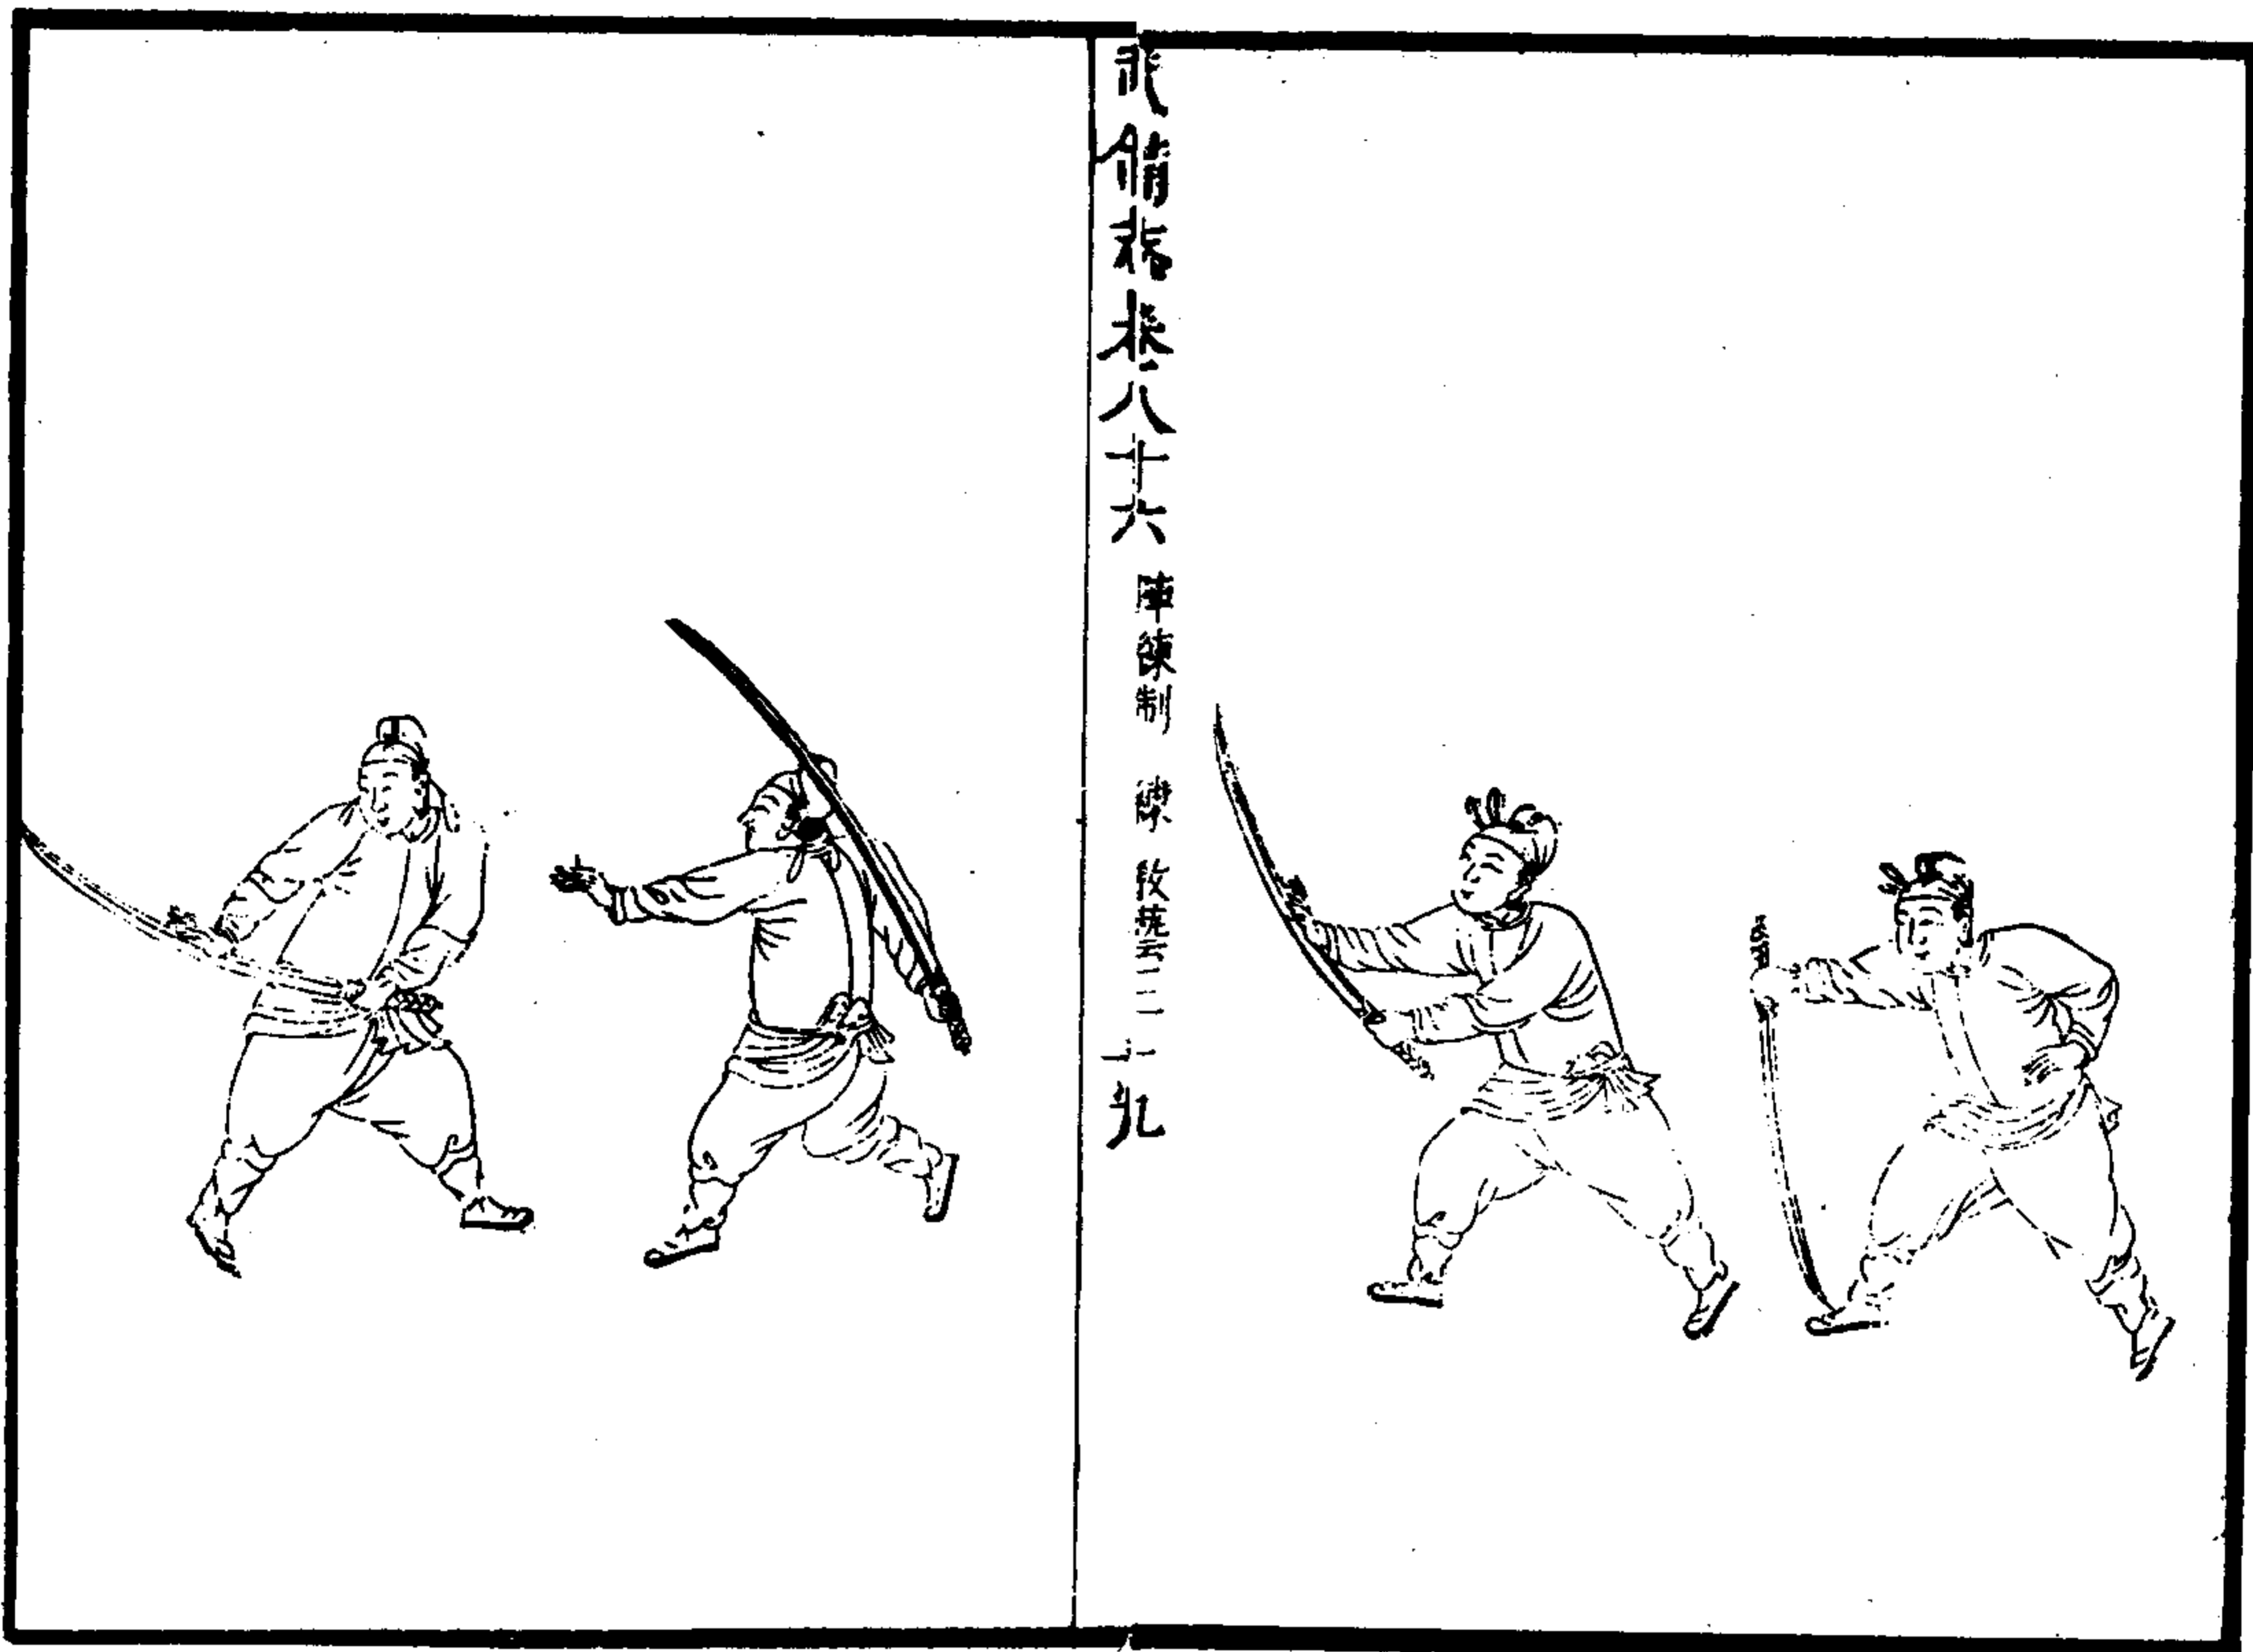 武備志卷八十六 陣練制 練 教藝三 十九